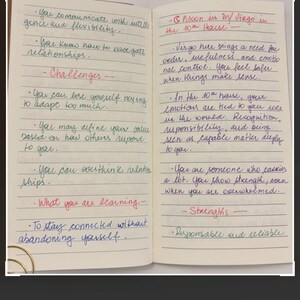 · You communicate with intelli
gence and flexibility.
· You know how to navigate
relationships.
- Challenges -
· You can lose yourself trying
to adapt too much.
· You may define your value
based on how others respond
to you.
· You can overthink relation
ships.
- What you are learning -
· To stay connected without
abandoning yourself.
Moon in Virgo in
the 10th House -
· Virgo here brings a need for
order, usefulness, and emotio
nal control. You feel safer
when things make sense.
· In the 10th house, your
emotions are tied to your role
in the world. Recognition,
responsibility, and being
seen as capable matter deeply
to you.
· You are someone who carries
a lot. You show strength, even
when you are overwhelmed.
- Strengths -
· Dependable and reliable